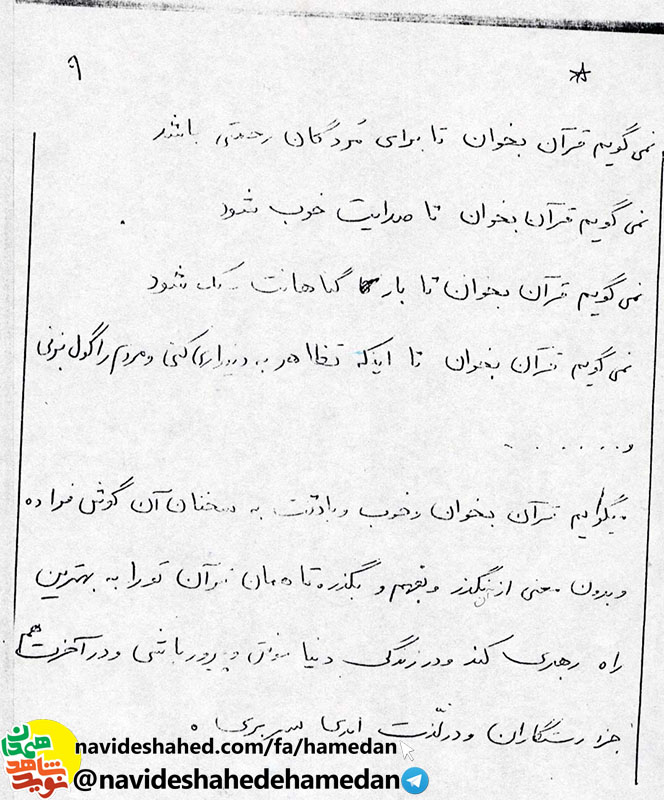 ۹
نمی گویم قرآن بخوان تا برای مردگان رحمتی باشد
نمی گویم قرآن بخوان تا صدایت خوب شود
نمی گویم قرآن بخوان تا بار گناهانت سبک شود
نمی گویم قرآن بخوان تا اینکه تظاهر به دینداری کنی و مردم را گول بزنی
و ......
میگوایم قرآن بخوان و خوب و بادقت به سخنان آن گوش فرا ده
و بدون معنی از آن نگذر و بفهم و بگذر تا همان قرآن تو را به بهترین
راه رهبری کند و در زندگی دنیا موفق و پیروز باشی و در آخرت هم
جزء رستگاران و در لذّت ابدی سر بری .
navideshahed.com/fa/hamedan
@navideshahedehamedan
نوید شاهد همدان